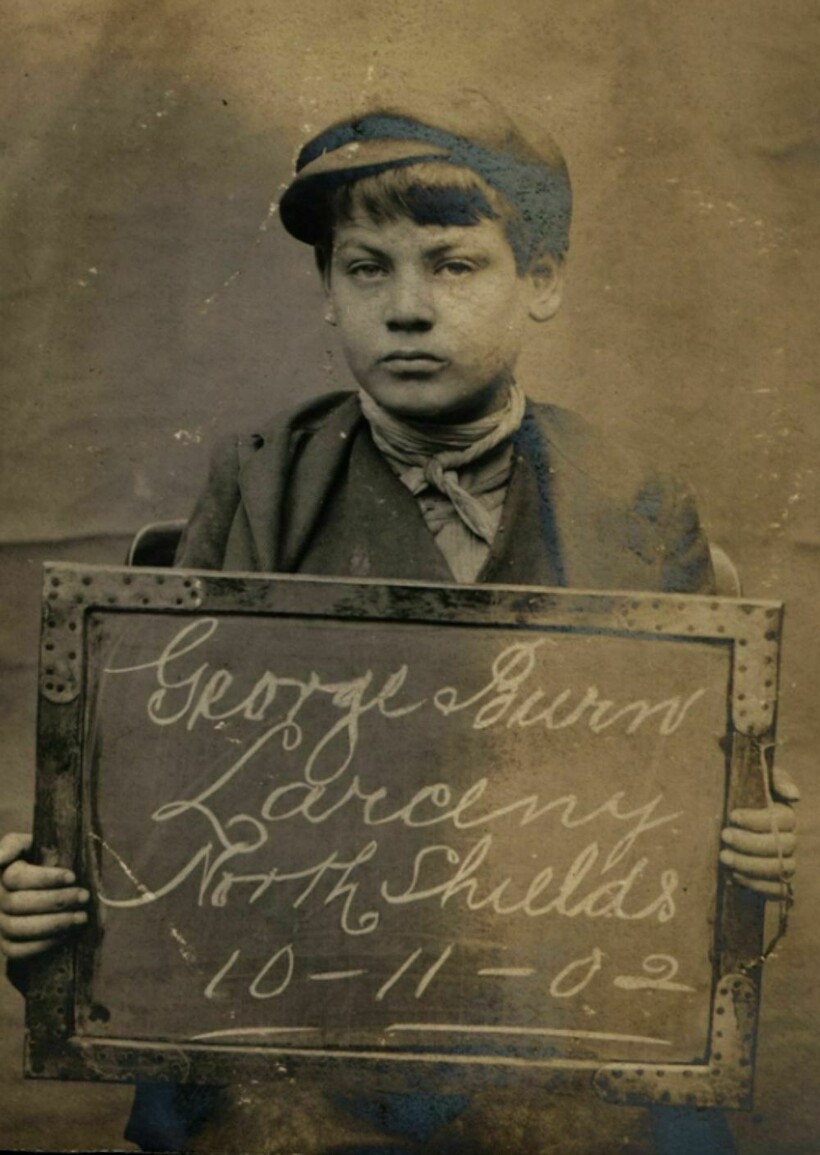 George Burn
Larceny
North Shields
10-11-02